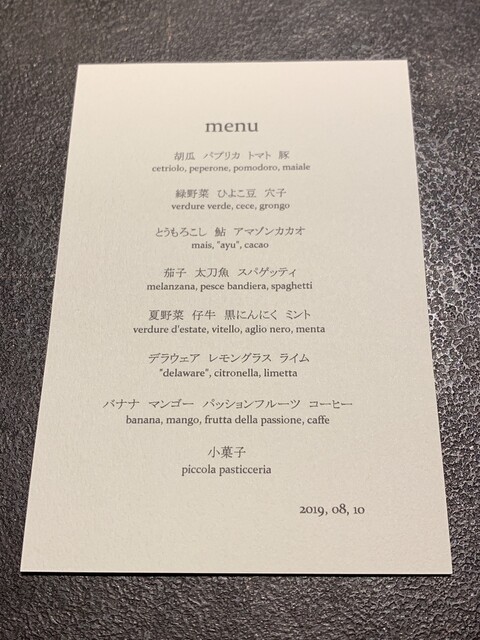 menu
胡瓜 パプリカ トマト 豚
cetriolo, peperone, pomodoro, maiale
緑野菜 ひよこ豆 穴子
verdure verde, cece, grongo
とうもろこし 鮎 アマゾンカカオ
mais, "ayu", cacao
茄子 太刀魚 スパゲッティ
melanzana, pesce bandiera, spaghetti
夏野菜 仔牛 黒にんにく ミント
verdure d'estate, vitello, aglio nero, menta
デラウェア レモングラス ライム
"delaware", citronella, limetta
バナナ マンゴー パッションフルーツ コーヒー
banana, mango, frutta della passione, caffe
小菓子
piccola pasticceria
2019, 08, 10